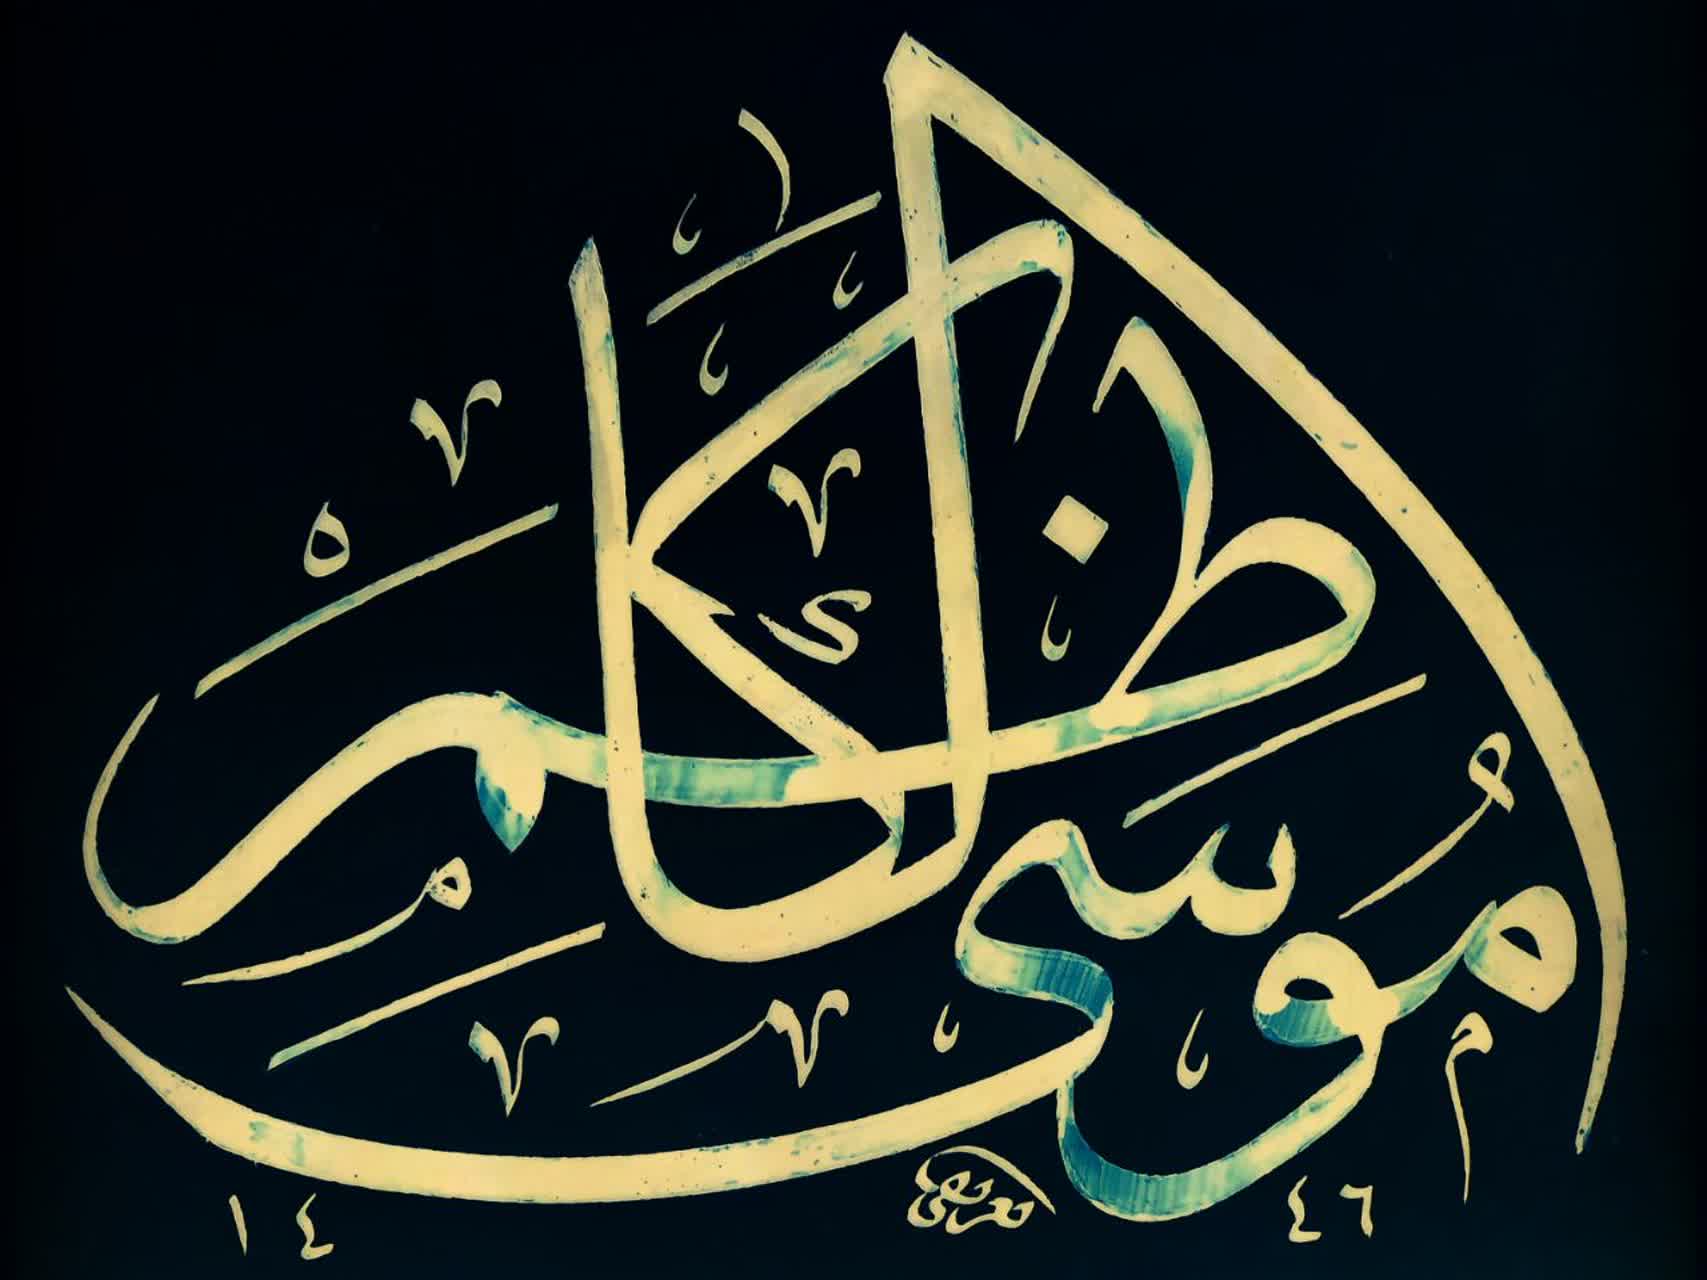 مُوسَى
الكَاظِم
١٤ ٤٦